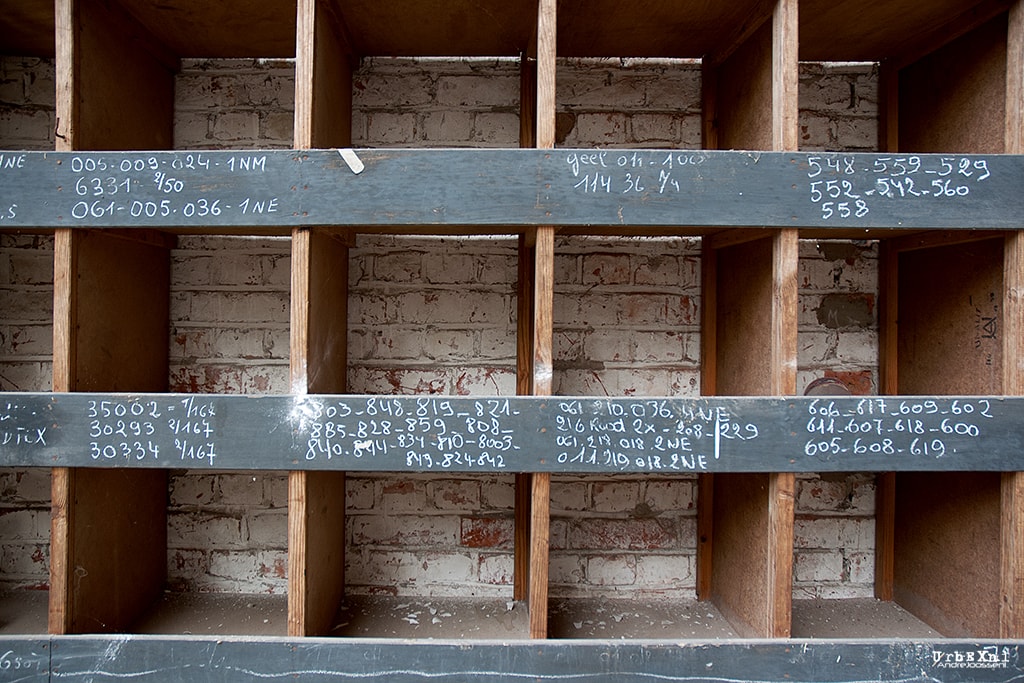 1NE
005-009-024-1NM
6331 2/50
061-005.036-1NE
geel on-100
114 36 7/4
548-559-529
552-542-560
558
35002 = 7/167
30293 2/167
30334 2/167
803-848-819-821-
885-828-859-808-
840-844-834-810-8003-
849-824-842
061.210.036.4NE
216 Rood 2x-208-229
061.219.018-2NE
011.219.018-2NE
606-617-609-602
611-607-618-600
605-608-619.
UrbEXnl
AndreJoosse.nl